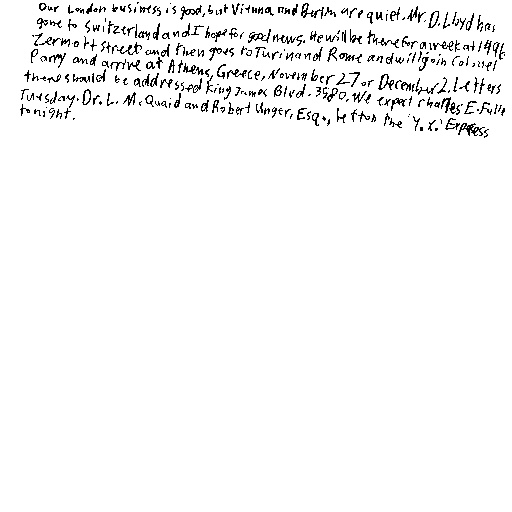 Our London business is good, but Vienna and Berlin are quiet. Mr. D. Lloyd has
gone to Switzerland and I hope for good news. He will be there for a week at 1496
Zermott Street and then goes to Turin and Rome and will join Colonel
Parry and arrive at Athens, Greece, November 27 or December 2. Letters
there should be addressed King James Blvd. 3580. We expect Charles E. Fuller
Tuesday. Dr. L. McQuaid and Robert Unger, Esq., left on the 'Y.X.' Express
tonight.